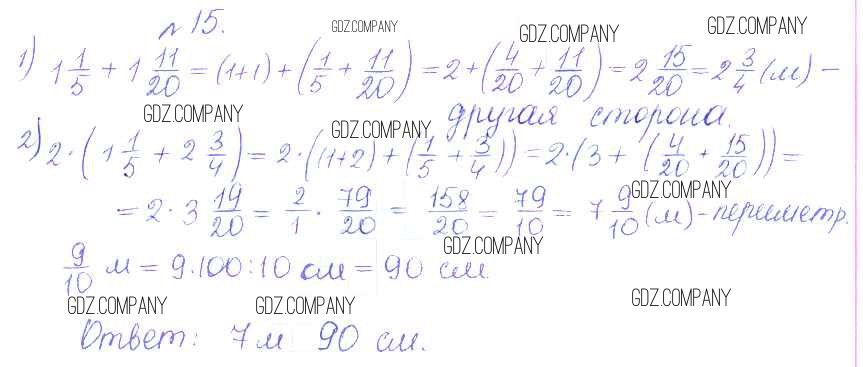 №15.
GDZ.COMPANY GDZ.COMPANY GDZ.COMPANY
1) 1 1/5 + 1 11/20 = (1+1) + (1/5 + 11/20) = 2 + (4/20 + 11/20) = 2 15/20 = 2 3/4 (м) –
GDZ.COMPANY GDZ.COMPANY другая сторона.
2) 2 · (1 1/5 + 2 3/4) = 2 · ((1+2) + (1/5 + 3/4)) = 2 · (3 + (4/20 + 15/20)) =
GDZ.COMPANY
= 2 · 3 19/20 = 2/1 · 79/20 = 158/20 = 79/10 = 7 9/10 (м) – периметр.
GDZ.COMPANY
9/10 м = 9·100:10 см = 90 см.
GDZ.COMPANY GDZ.COMPANY GDZ.COMPANY
Ответ: 7 м 90 см.